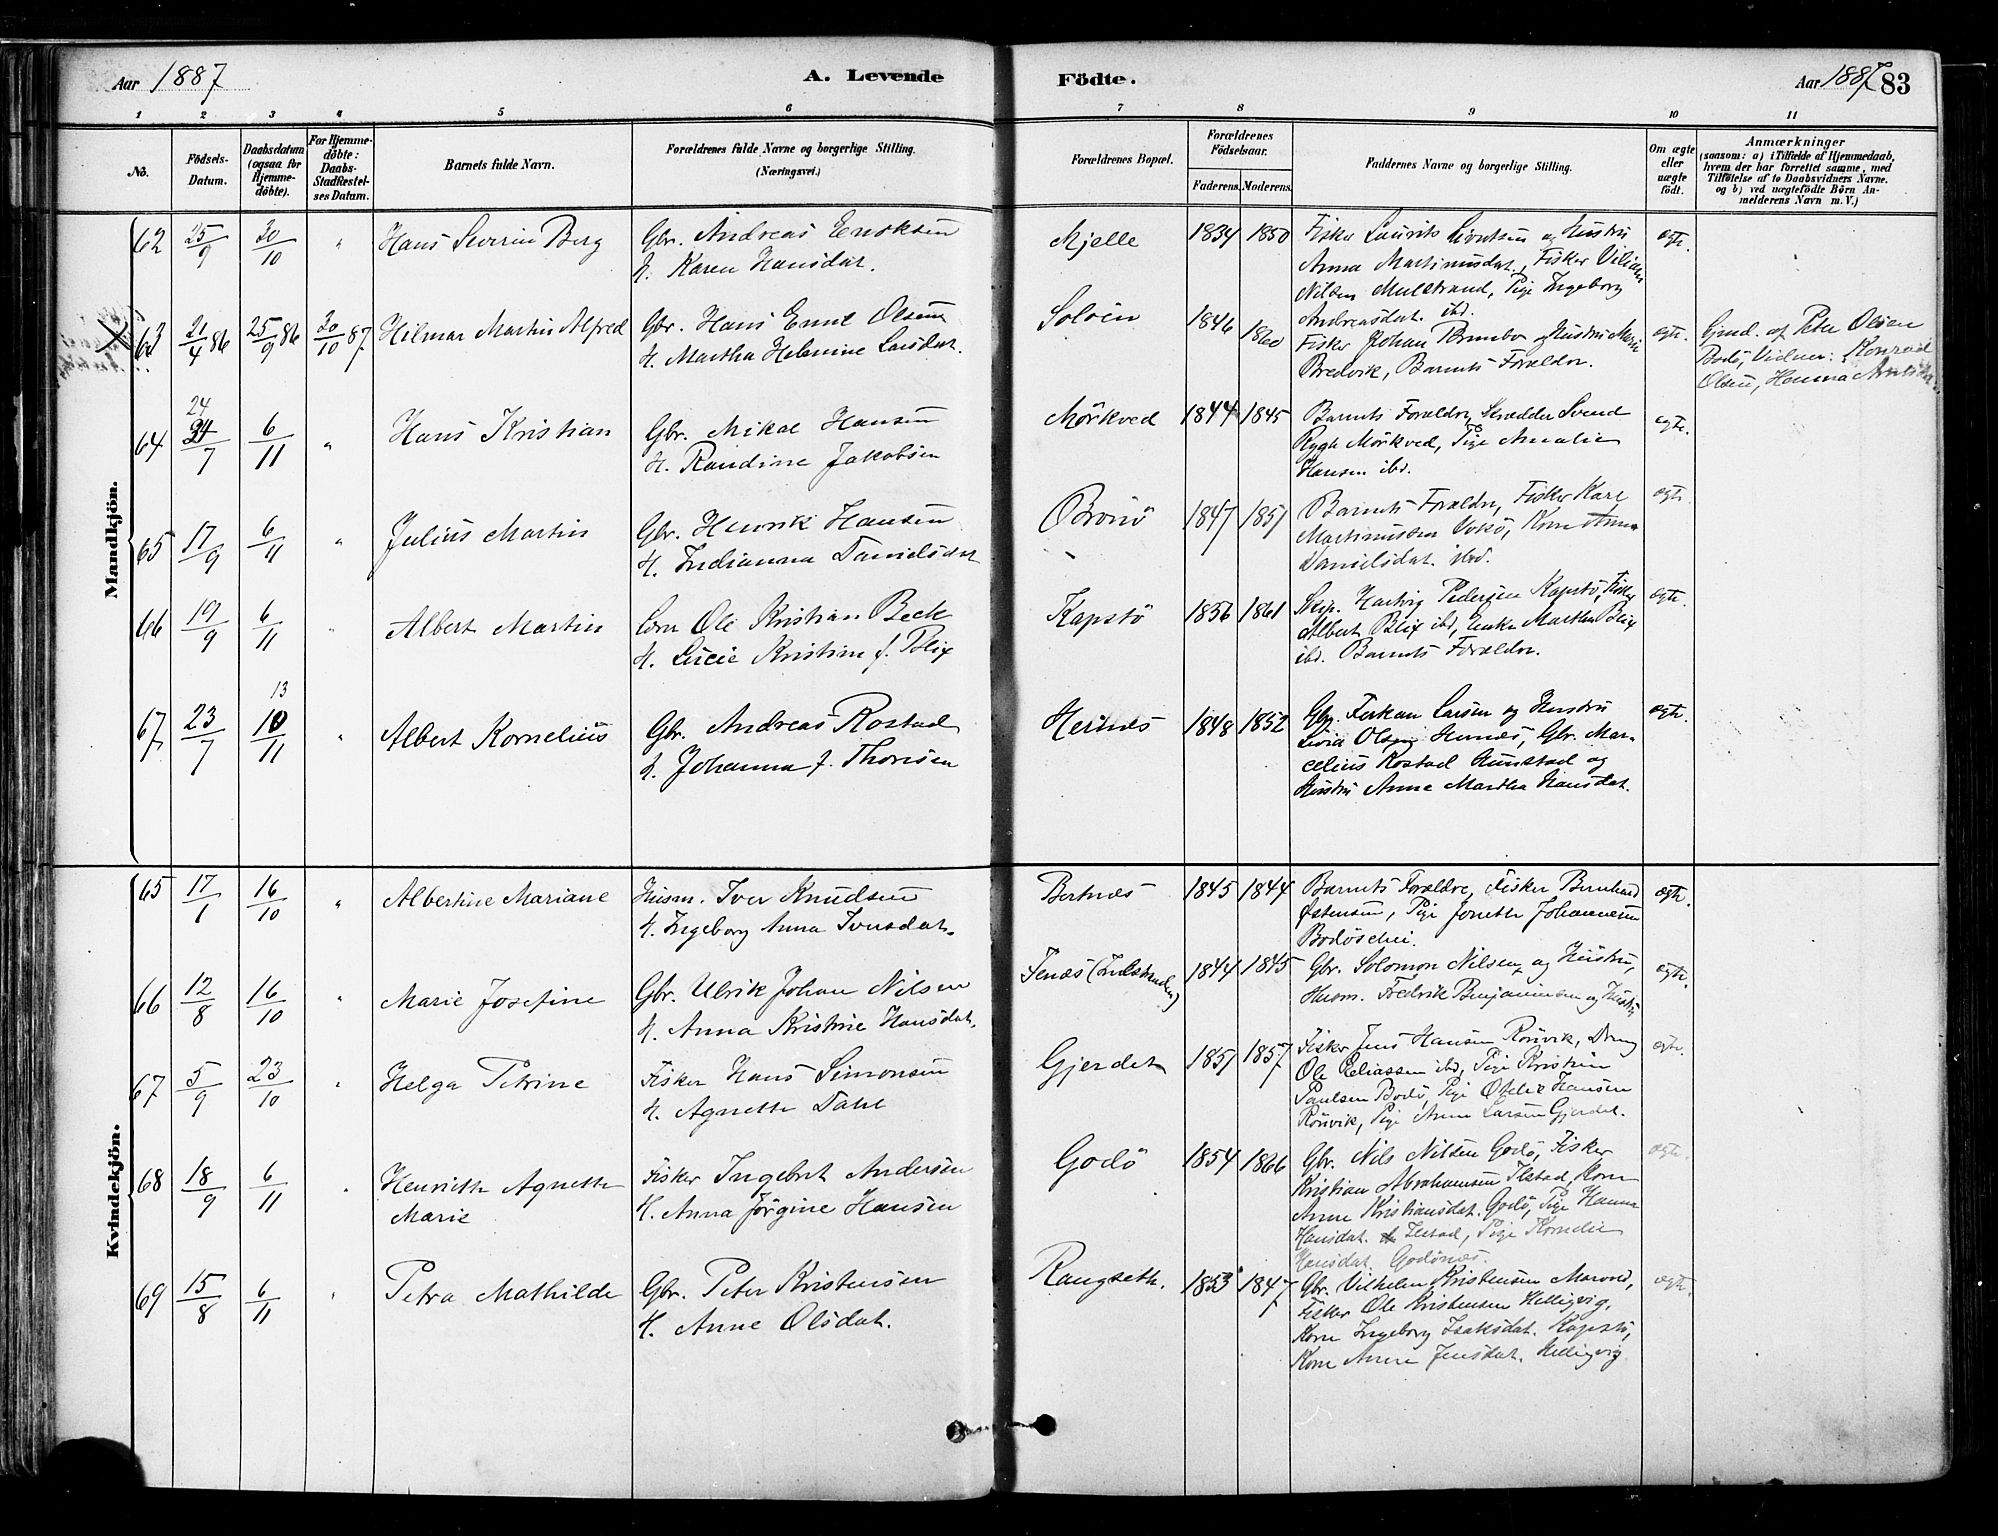 Aar 1887
A. Levende
Födte.
Aar 1887 83
1 2 3 4 5 6 7 8 9 10 11
No.
Födsels-Datum.
Daabsdatum (ogsaa for Hjemmedöbte).
For Hjemmedöbte: Daabs-Stadfæstelses Datum.
Barnets fulde Navn.
Forældrenes fulde Navne og borgerlige Stilling. (Næringsvei.)
Forældrenes Bopæl.
Forældrenes Födselsaar.
Faderens. Moderens.
Faddernes Navne og borgerlige Stilling.
Om ægte eller uægte födt.
Anmærkninger
(saasom: a) i Tilfælde af Hjemmedaab,
hvem der har forrettet samme, med
Tilföielse af to Daabsvidners Navne.
og b) ved uægtefödte Börn Anmelderens Navn m. V.)
Mandkjön.
62 25/9 30/10 " Hans Severin Berg
Gbr. Andreas Enoksen
H. Karen Hansdat.
Mjelle 1834 1850
Fisker Laurits Sivertsen og Hustru
Anna Martinusdat., Fisker
Nilsen Mulstrand, Pige Ingeborg
Andreasdat. ibd.
ægte.
63 21/4 86 25/9 86 30/10 87 Hilmar Martin Alfred
Gbr. Hans Emil Olsen
H. Martha Helmine Larsdat.
Soløen 1846 1860
Fisker Johan og Hustru Marie
Bredvik, Barnets Forældre.
ægte.
Gjmd. af Peter Olsen
Bodø, Vidner: Konrad
Olsen, Hanna
64 24/7 6/11 " Hans Kristian
Gbr. Mikal Hansen
H. Randine Jakobsen
Mörkved 1844 1845
Barnets Forældre, Skrædder Svend
Rygh Mörkved, Pige Amalie
Hansen ibd.
ægte.
65 17/9 6/11 " Julius Martin
Gbr. Henrik Hansen
H. Indianna Danielsdat
1847 1851
Barnets Forældre, Fisker Karl
Martinussen Kone Anna
Danielsdat. ibd.
ægte.
66 19/9 6/11 " Albert Martin
Ole Kristian Beck
H. Lucie Kristine f. Blix
Kapstö 1856 1861
Skip. Hartvig Pedersen Kapstö, Fisker
Albert Blix ibd, Enke Martha Blix
ibd. Barnets Forældre.
ægte.
67 23/7 13 10/11 " Albert Kornelius
Gbr. Andreas Rostad
H. Johanna f. Thorisen
Hernæs 1848 1852
Gbr. Larsen og Hustru
Olsen Hernæs, Gbr. Marcelius Rostad Hunstad og
Hustru Anne Martha Hansdat.
ægte.
Kvindekjön.
65 17/1 16/10 " Albertine Mariane
Husm. Iver Knudsen
H. Ingeborg Anna Iversdat.
Bertnæs 1845 1844
Barnets Forældre, Fisker Bernhard
Østensen, Pige Jonette Johannesen
Bodöschei.
ægte.
66 12/8 16/10 " Marie Josefine
Gbr. Ulrik Johan Nilsen
H. Anna Kristine Hansdat.
Fenæs 1844 1845
Gbr. Solomon Nilsen og Hustru,
Husm. Fredrik Benjaminsen og Hustru
ægte.
67 5/9 23/10 " Helga Petrine
Fisker Hans Simonsen
H. Agnette Dahl
Gjerdet 1851 1857
Fisker Jens Hansen Rönvik, Dreng
Ole Eliassen ibd, Pige Kristine
Paulsen Bodö, Pige Hansen
Rönvik, Pige Anne Larsen Gjerdet.
ægte.
68 18/9 6/11 " Henriette Agnette
Marie
Fisker Ingebret Andersen
H. Anna Jørgine Hansen
Godö 1854 1866
Gbr. Nils Nilsen Godö, Fisker
Kristian Abrahamsen Ilstad, Kone
Anne Kristiansdat. Godö, Pige Hanna
Hansdat. Ilstad, Pige Kornelie
Hansdat. Godönæs.
ægte.
69 15/8 6/11 " Petra Mathilde
Gbr. Peter Kristensen
H. Anne Olsdat.
Rangseth. 1853 1847
Gbr. Vilhelm Kristensen
Fisker Ole Kristensen Helligvig,
Kone Ingeborg Isaksdat. Kapstö,
Kone Anne Jensdat. Helligvig
ægte.